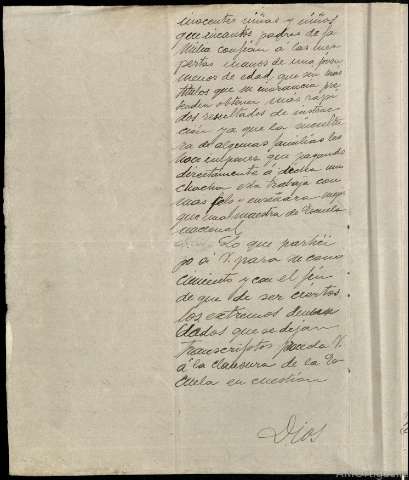 inocentes niñas y niños
que incautos padres de fa
milia confian á las inex
pertas manos de una joven
menor de edad, que sin más
titulos que su ignorancia pre
tenden obtener más rápi
dos resultados de instruc
ción ya que la incultu
ra de algunas familias les
hace suponer que pagando
directamente á dicha mu
chacha esta trabaja con
mas celo y enseñara mejor
que una maestra de Escuela
nacional
Lo que partici
po á V. para su cono
cimiento y con el fin
de que de ser ciertos
los extremos denun
ciados que se dejan
transcriptos proceda V.
á la clausura de la Es
cuela en cuestión
Dios